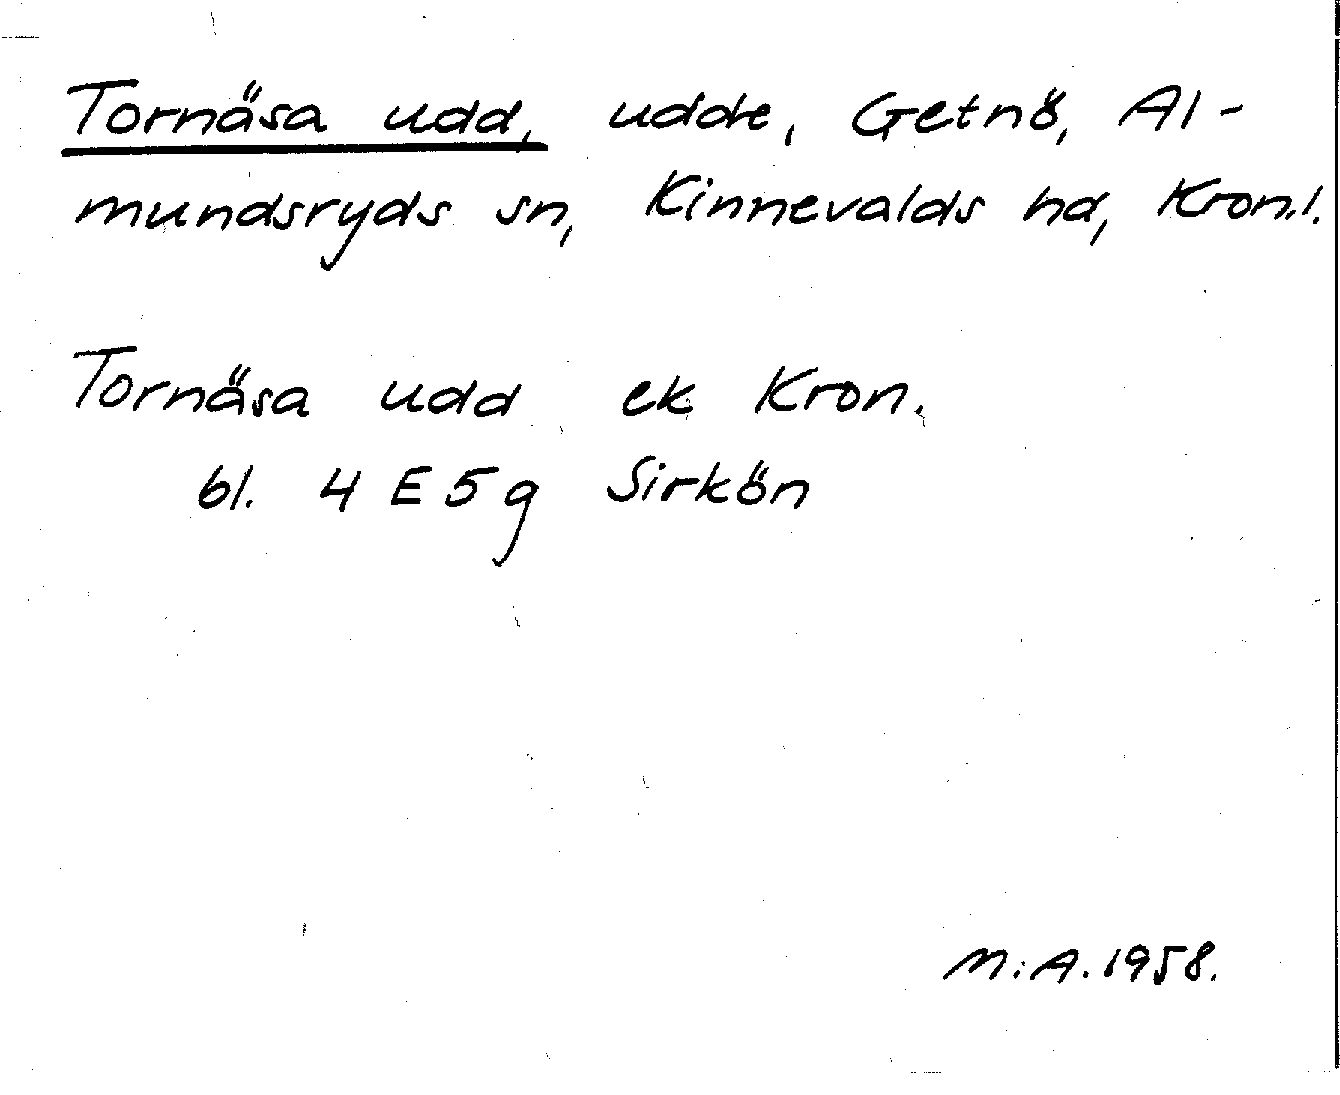 Tornäsa udd, udde, Getnö, Al-
mundsryds sn, Kinnevalds hd, Kron.l.
Tornäsa udd ek Kron.
bl. 4 E 5 g Sirkön
M.A. 1958.